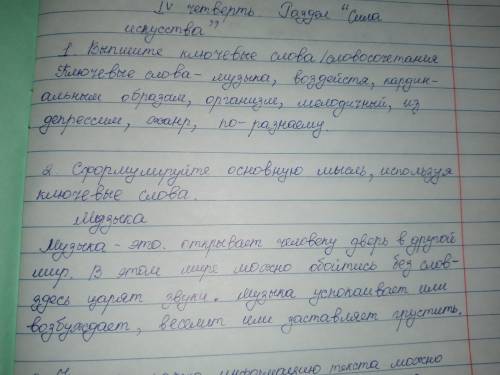 IV четверть Раздел "Сила
искусства"
1. Выпишите ключевые слова/словосочетания
Ключевые слова - музыка, воздейств, кардин-
альным образам, организм, мелодичный, из
депрессии, жанр, по-разнаему.
2. Сформулируйте основную мысль, используя
ключевые слова.
Музыка
Музыка - это. открывает человеку дверь в другой
мир. В этом мире можно обойтись без слов-
здесь царят звуки. Музыка успокаивает или
возбуждает, веселит или заставляет грустить.
информацию текста можно